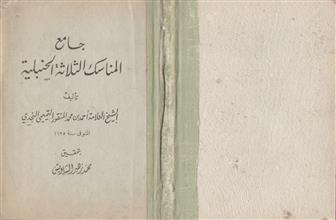 جامع
المناسك الثلاثة الحنبلية
تأليف
الشيخ العلامة أحمد بن محمد المنقور التميمي النجدي
المتوفى سنة ١١٢٥
بتحقيق
محمد زهير الشاويش